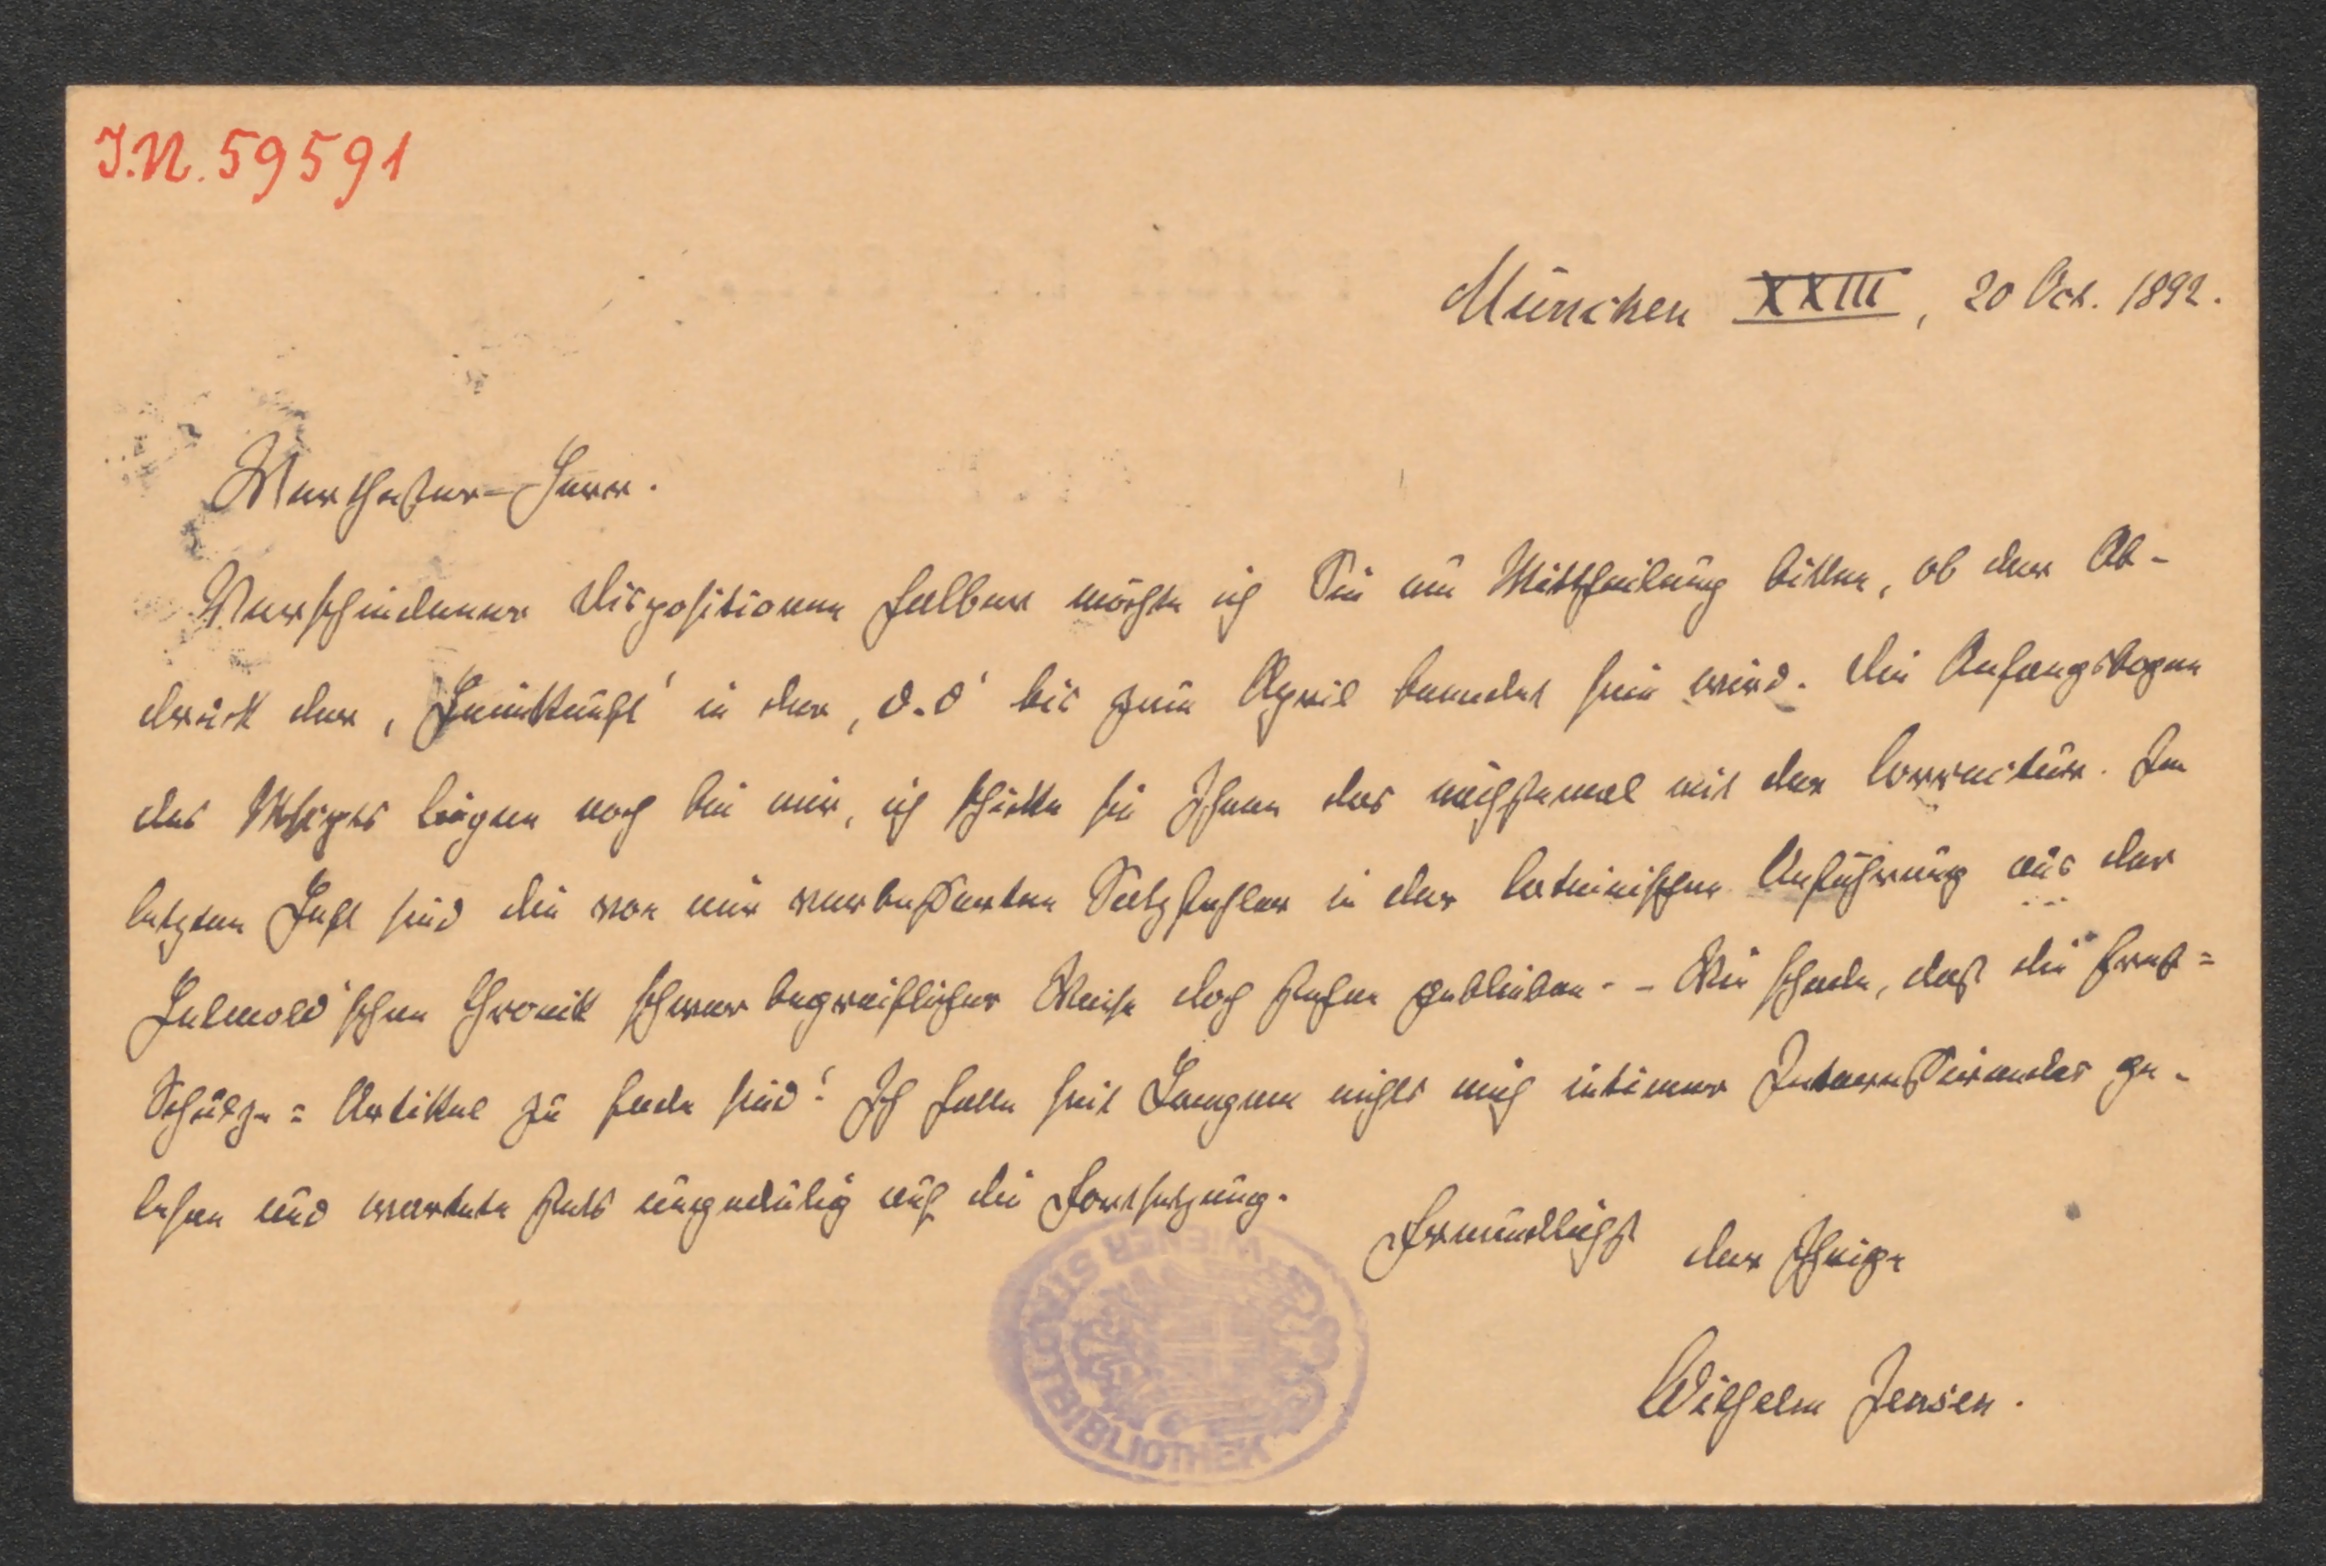 I.N. 59591
München XXIII, 20 Oct. 1892.
Werthester Herr.
Verschiedener Dispositionen halber möchte ich Sie um Mittheilung bitten, ob der Ab-
druck der ‚Heimkunft' in der ‚d. d' bis zum April beendet sein wird. Die Anfangsbogen
des Mscptes liegen noch bei mir, ich schicke sie Ihnen das nächstemal mit der Correctur. Im
letzten Heft sind die von mir verbesserten Satzfehler in der lateinischen Anführung aus der
Helmold'schen Chronik schwer begreiflicher Weise doch stehen geblieben. - Wie schade, daß die
Schulze = Artikel zu Ende sind! Ich habe seit Langem nichts mich intimer Interessirendes ge-
lesen und wartete stets ungeduldig auf die Fortsetzung.
Freundlichst der Ihrige
Wilhelm Jensen.
WIENER STADTBIBLIOTHEK